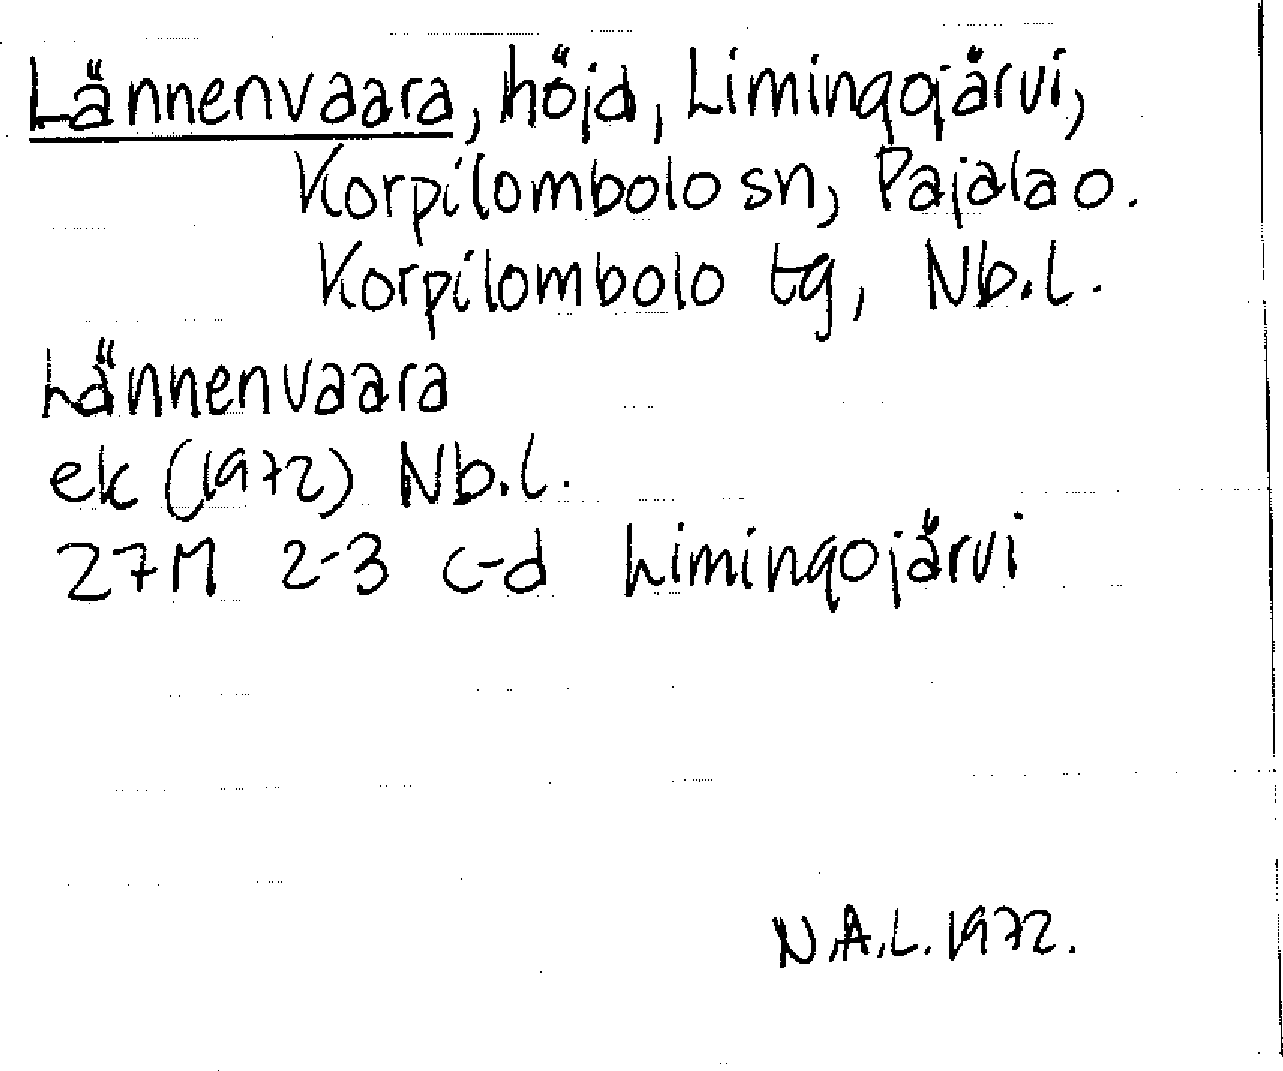 Lännenvaara, höjd, Limingojärvi,
Korpilombolo sn, Pajala o.
Korpilombolo tg, Nb.l.
Lännenvaara
ek (1972) Nb.l.
27M 2-3 c-d Limingojärvi
N.A.L. 1972.